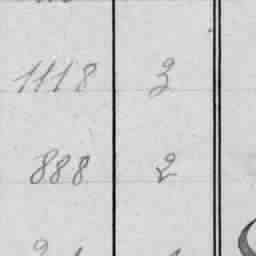 1118 3
888 2